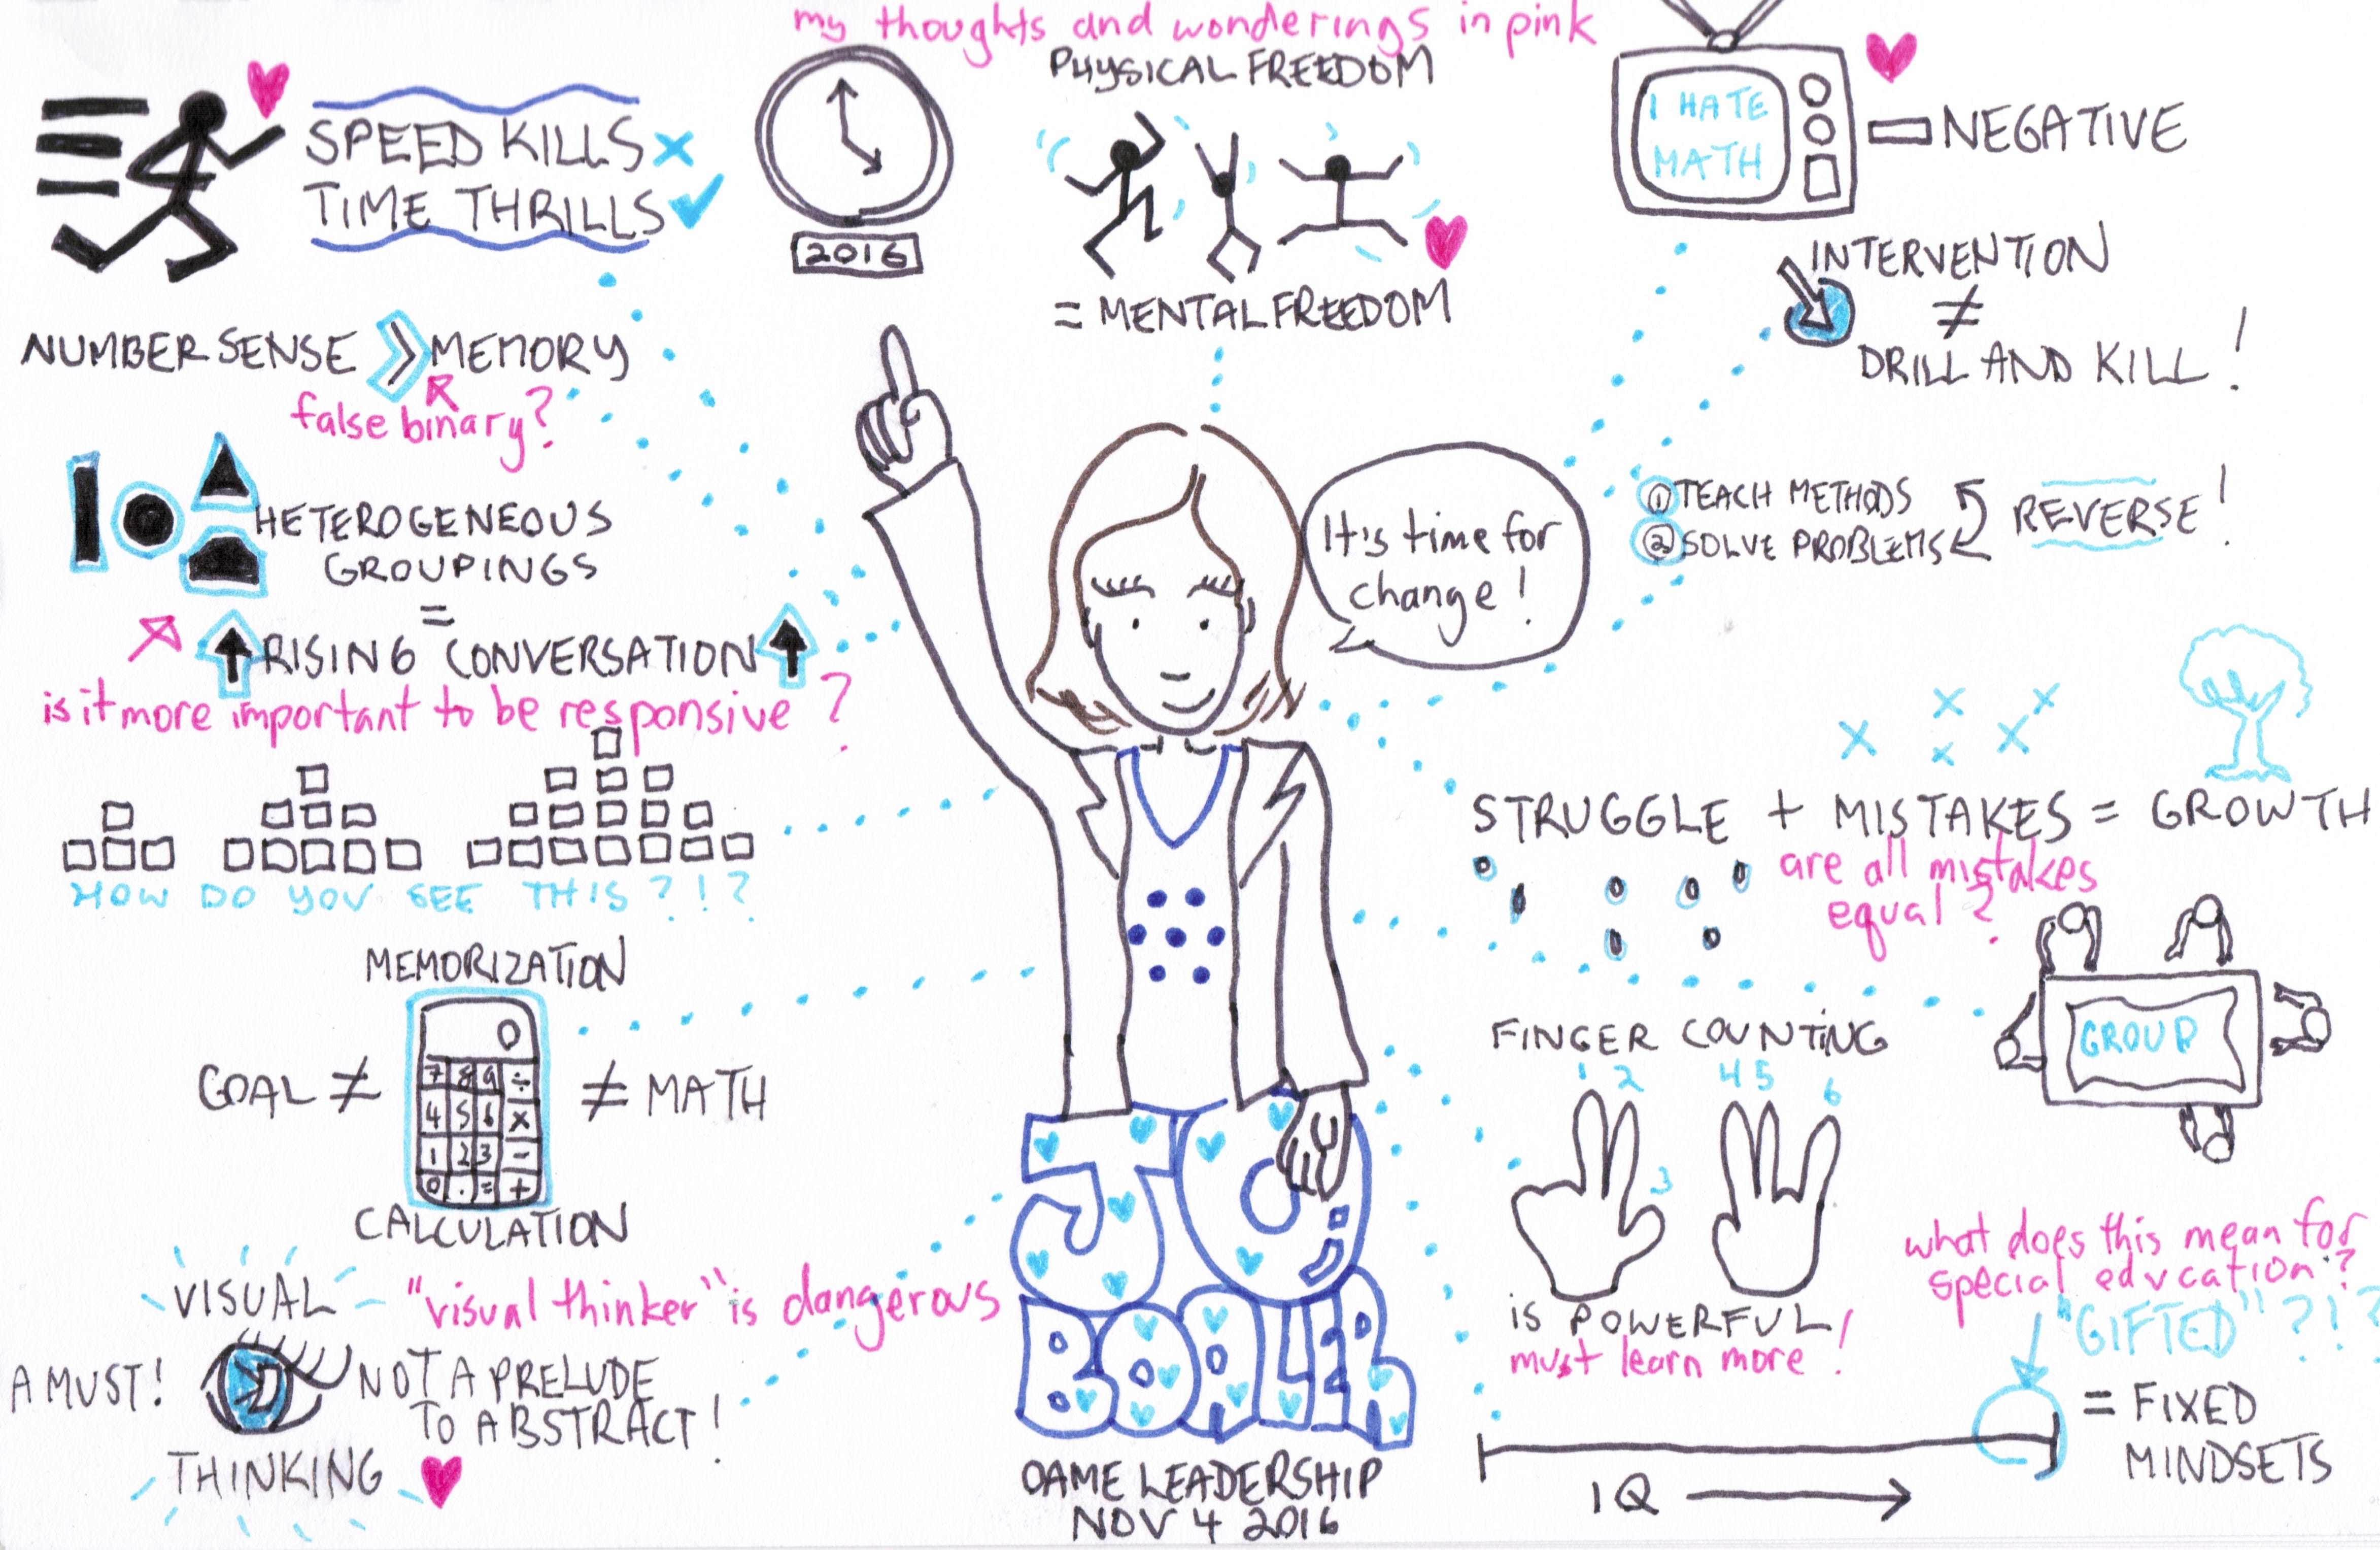 my thoughts and wonderings in pink
SPEED KILLS
TIME THRILLS
2016
PHYSICAL FREEDOM
= MENTAL FREEDOM
I HATE
MATH
NEGATIVE
INTERVENTION
≠
DRILL AND KILL!
NUMBER SENSE > MEMORY
false binary?
HETEROGENEOUS
GROUPINGS
=
RISING CONVERSATION
is it more important to be responsive?
It's time for
change!
1 TEACH METHODS
2 SOLVE PROBLEMS
REVERSE!
STRUGGLE + MISTAKES = GROWTH
are all mistakes
equal?
HOW DO YOU SEE THIS?!?
MEMORIZATION
GOAL ≠
0
7 8 9 ÷
4 5 6 ×
1 2 3 -
0 . = +
≠ MATH
CALCULATION
FINGER COUNTING
1 2 3 4 5 6
is POWERFUL!
must learn more!
GROUP
VISUAL
"visual thinker" is dangerous
A MUST!
NOT A PRELUDE
TO ABSTRACT!
THINKING
JO
BOALER
OAME LEADERSHIP
NOV 4 2016
what does this mean for
special education?
"GIFTED"?!?
= FIXED
MINDSETS
IQ